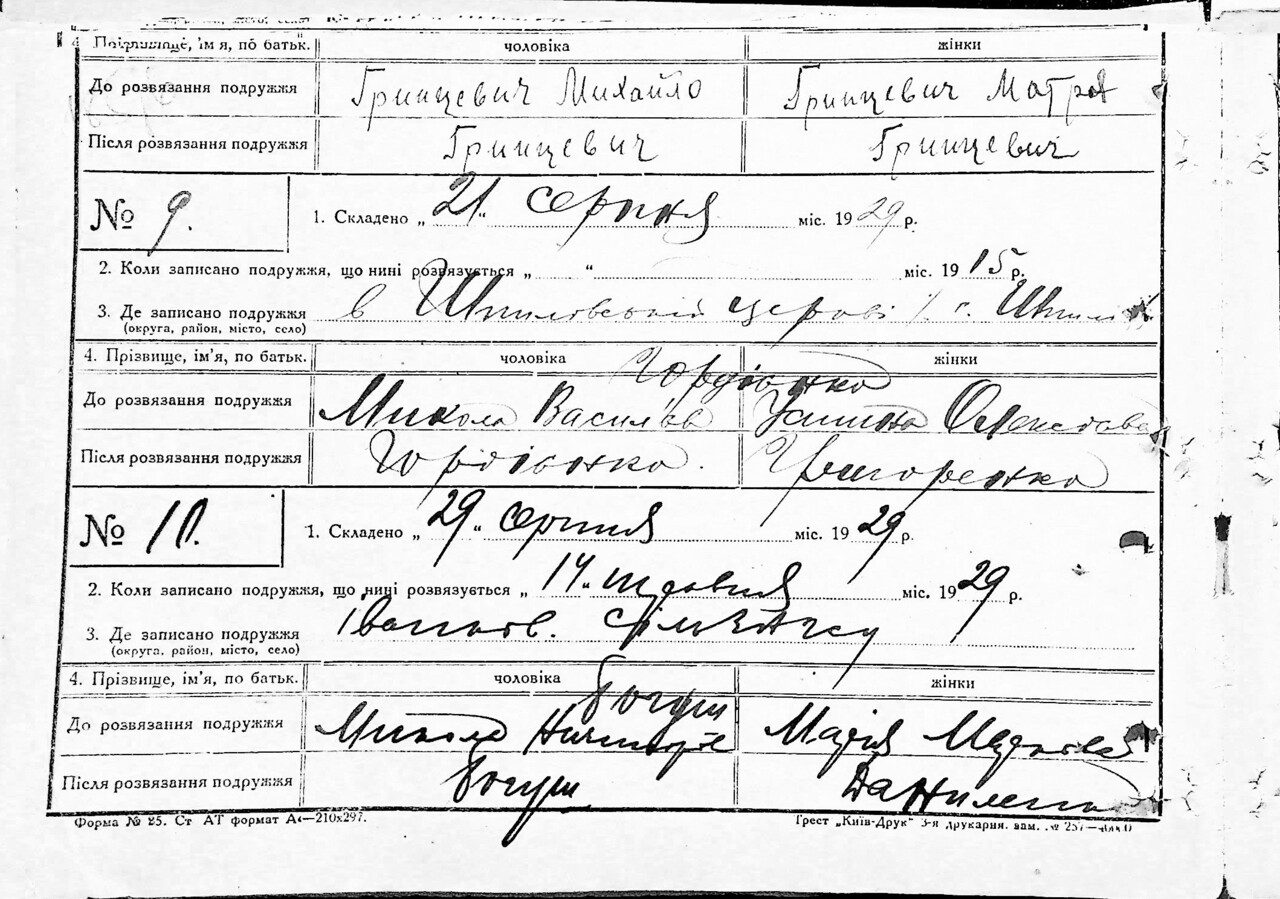 4. Прізвище, ім'я, по батьк. чоловіка жінки
До розвязання подружжя Гринцевич Михайло Гринцевич Мотря
Після розвязання подружжя Гринцевич Гринцевич
№ 9. 1. Складено „21“ серпня міс. 1929 р.
2. Коли записано подружжя, що нині розвязується „ “ міс. 1915 р.
3. Де записано подружжя в Шпилівській церкві с.
(округа, район, місто, село)
4. Прізвище, ім'я, по батьк. чоловіка жінки
Гордієнко
До розвязання подружжя Микола Василів Устина
Після розвязання подружжя Гордієнко. Григоренко
№ 10. 1. Складено „29“ серпня міс. 1929 р.
2. Коли записано подружжя, що нині розвязується „14“ травня міс. 1929 р.
3. Де записано подружжя Іванків.
(округа, район, місто, село)
4. Прізвище, ім'я, по батьк. чоловіка жінки
Богуш
До розвязання подружжя Микола Марія
Після розвязання подружжя Богуш Даниленко
Форма № 25. Ст АТ формат А4—210х297. Трест „Київ-Друк“ 3-я друкарня. зам. № 257